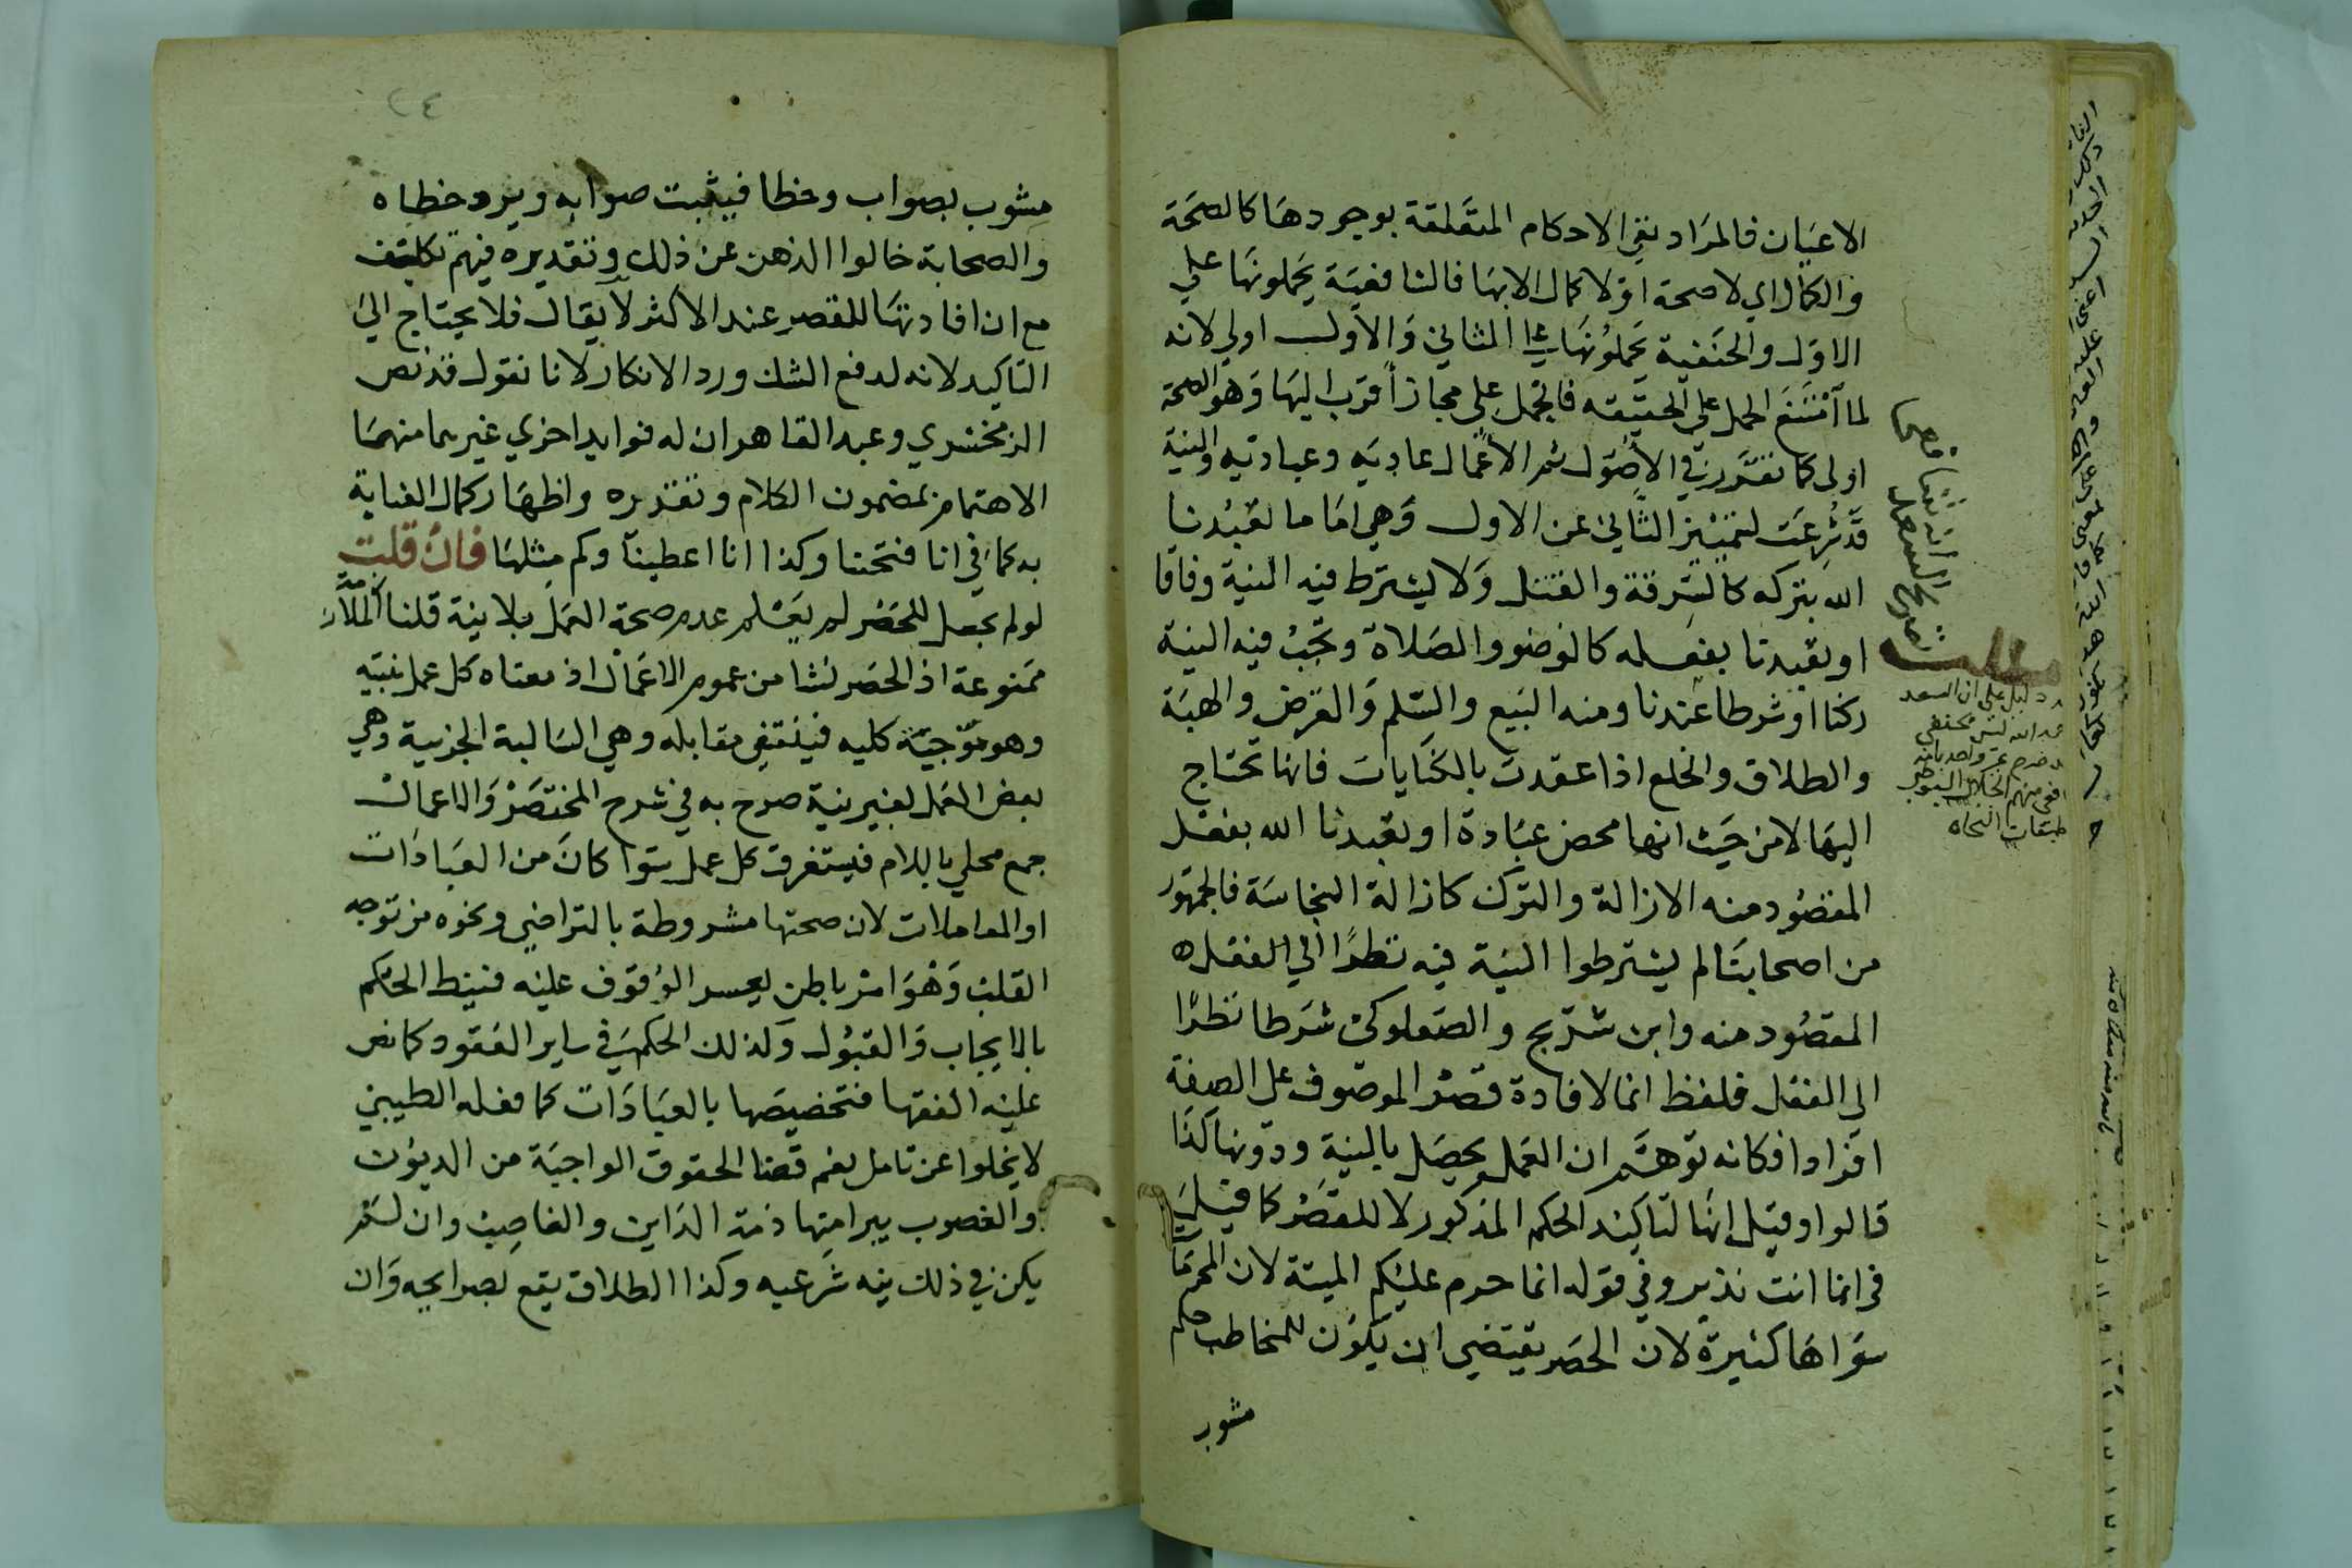 الاعيان فالمراد نفي الاحكام المتعلقة بوجودها كالصحة
والكمال اي لا صحة او لا كمال الا بها فالشافعية يحملونها علي
الاول والحنفية يحملونها علي الثاني والاول اولي لانه
لما امتنع الحمل علي الحقيقه فالحمل علي مجاز اقرب اليها وهو الصحة
اولى كما تقرر في الاصول ثم الاعمال عاديه وعباديه والنية
قد شرعت لتمييز الثاني عن الاول وهي اما ما تعبدنا
الله بتركه كالسرقة والقتل ولا يشترط فيه النية وفاقا
او تعبدنا بفعله كالوضوء والصلاة وتجب فيه النية
ركنا او شرطا عندنا ومنه البيع والسلم والقرض والهبة
والطلاق والخلع اذا عقدت بالكنايات فانها تحتاج
اليها لا من حيث انها محض عبادة او تعبدنا الله بفعل
المقصود منه الازالة والترك كازالة النجاسة فالجمهور
من اصحابنا لم يشترطوا النية فيه نظرا الي الفعل ه
المقصود منه وابن شريح والصعلوكي شرطا نظرا
الي الفعل فلفظ انما لافادة قصر الموصوف على الصفة
افرادا فكانه توهم ان العمل يحصل بالنية ودونها كذا
قالوا وقيل انها لتاكيد الحكم المذكور لا للقصر كما قيل
في انما انت نذير وفي قوله انما حرم عليكم الميتة لان المحرمات
سواها كثيرة لان الحصر يقتضي ان يكون للمخاطب حكم
مشوب
مطلب
دليل علي ان السعد
الله ليس بحنفي
منهم الجلال السيوطي
طبقات النحاه
٢٤
مشوب بصواب وخطا فيثبت صوابه ويرد خطاه
والصحابة خالوا الذهن عن ذلك وتقديره فيهم تكلف
مع ان افادتها للقصر عند الاكثر لا يقال فلا يحتاج الي
التاكيد لانه لدفع الشك ورد الانكار لانا نقول قد نص
الزمخشري وعبد القاهر ان له فوايد اخري غير ما منهما
الاهتمام بمضمون الكلام وتقديره واظهار كمال العناية
به كما في انا فتحنا وكذا انا اعطينا وكم مثلها فان قلت
لو لم يحصل للحصر لم يعلم عدم صحة العمل بلا نية قلنا الملازمة
ممنوعة اذ الحصر نشا من عموم الاعمال اذ معناه كل عمل بنيه
وهو موجبة كليه فينتفي مقابله وهي السالبة الجزيية وهي
بعض العمل بغير نية صرح به في شرح المختصر والاعمال
جمع محلي باللام فيستغرق كل عمل سوا كان من العبادات
او المعاملات لان صحتها مشروطة بالتراضي ونحوه من توجه
القلب وهو امر باطن يعسر الوقوف عليه فنيط الحكم
بالايجاب والقبول ولذلك الحكم في ساير العقود كما نص
عليه الفقها فتخصيصها بالعبادات كما فعله الطيبي
لا يخلوا عن تامل نعم قضا الحقوق الواجبة من الديون
والغصوب يبرا منها ذمة الداين والغاصب وان لم
يكن في ذلك نيه شرعيه وكذا الطلاق يقع بصرايحه وان